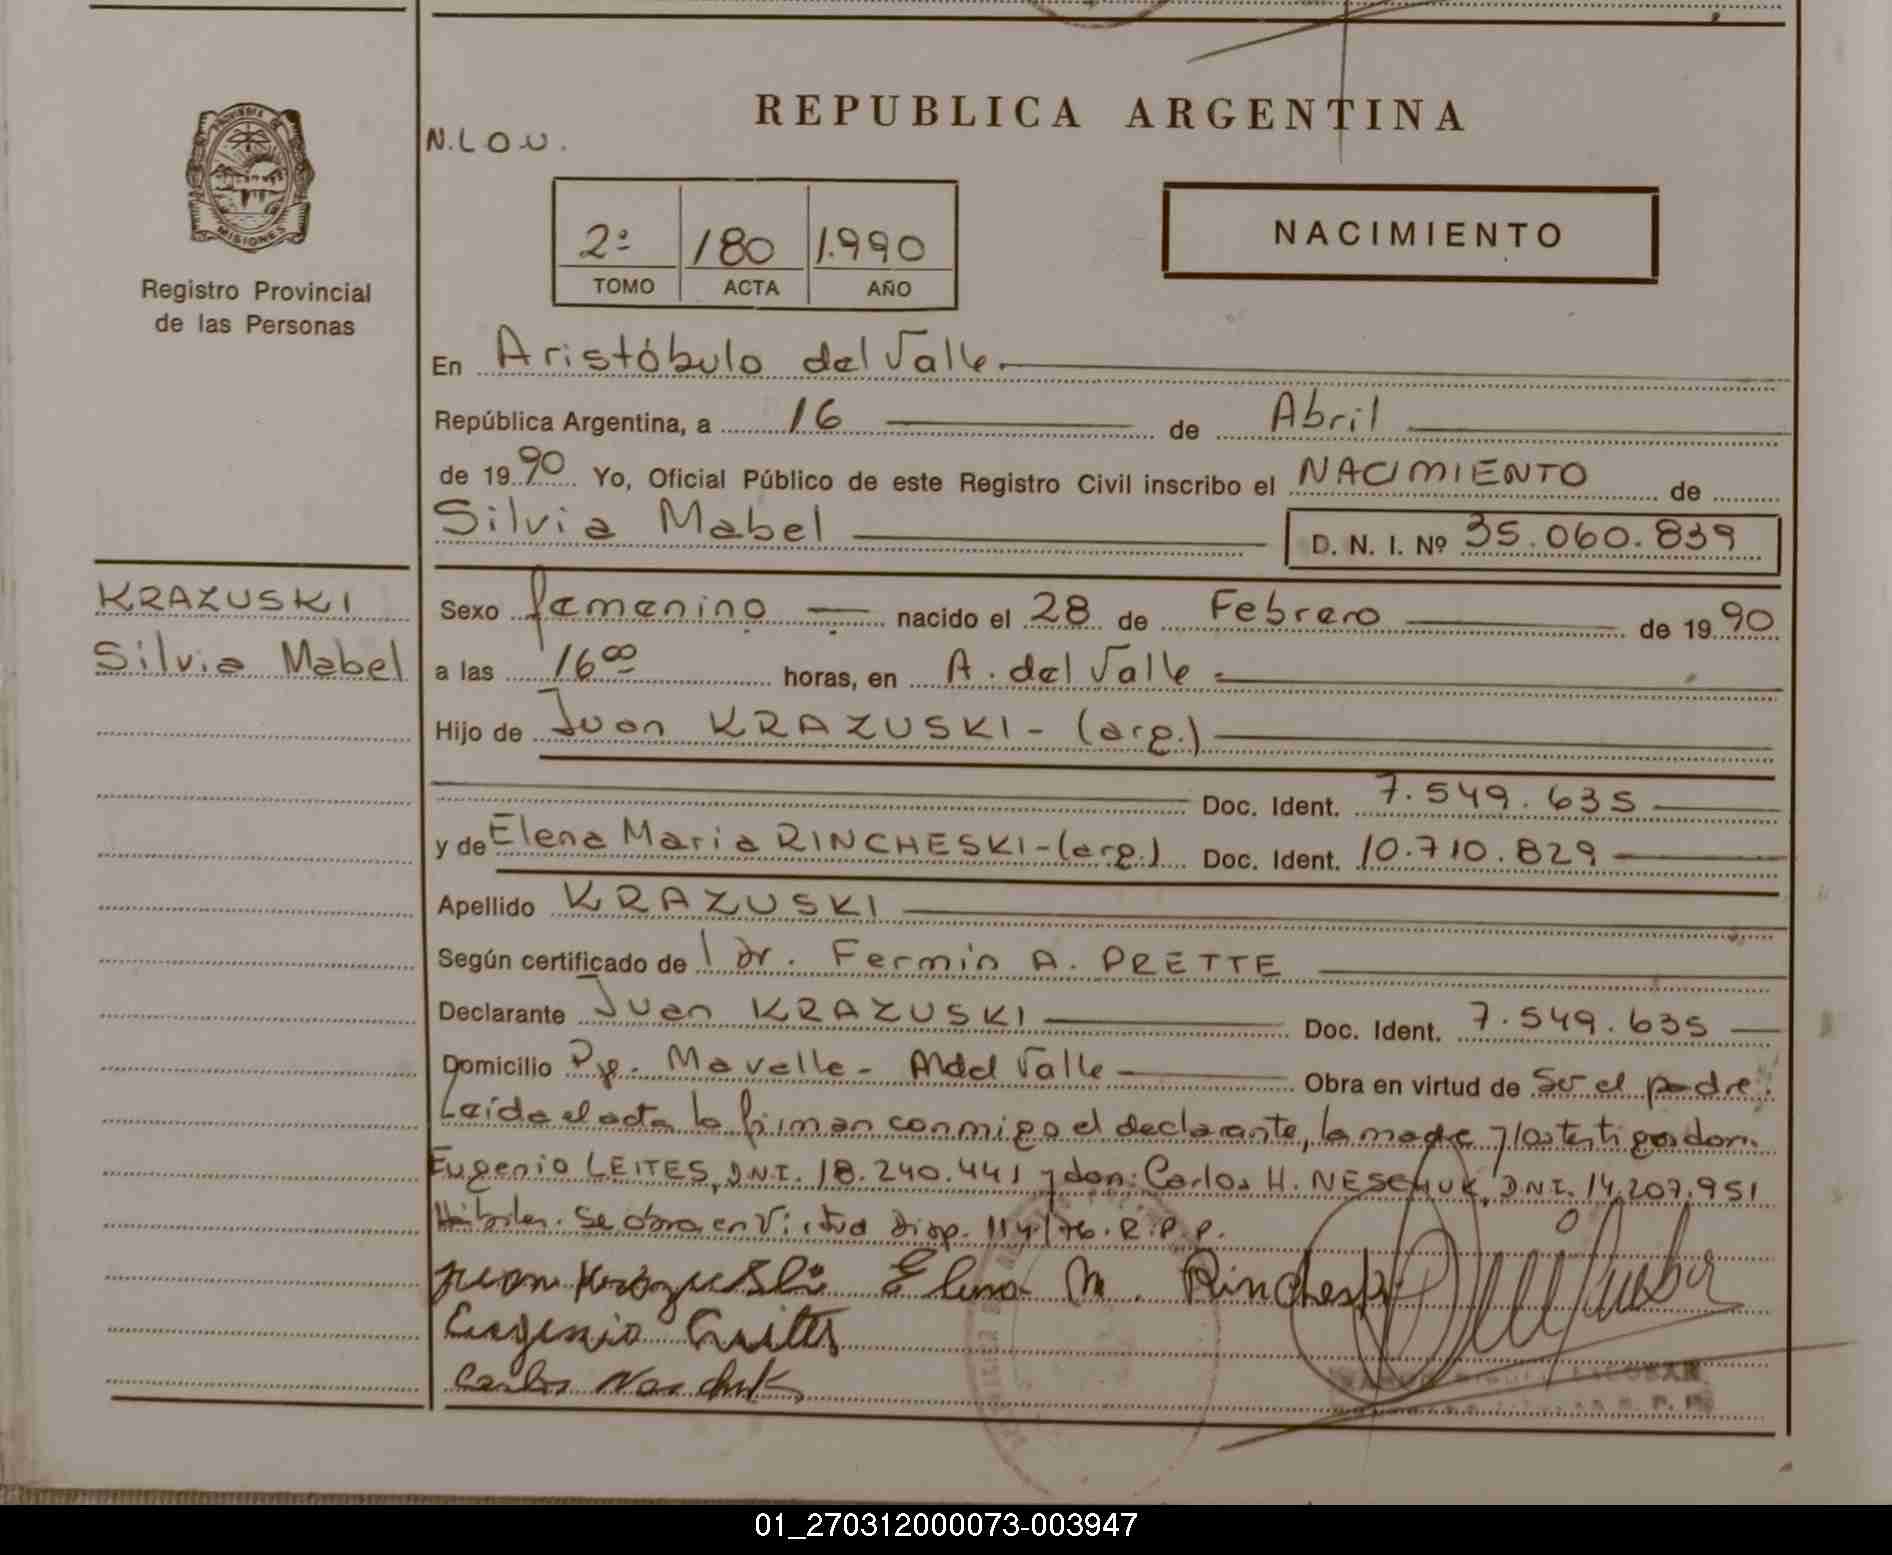 REPUBLICA ARGENTINA
N.L.O.U.
PROVINCIA DE
MISIONES
Registro Provincial
de las Personas
2º 180 1.990
TOMO ACTA AÑO
NACIMIENTO
En Aristóbulo del Valle.
República Argentina, a 16 de Abril
de 1990 Yo, Oficial Público de este Registro Civil inscribo el NACIMIENTO de
Silvia Mabel D. N. I. Nº 35.060.839
KRAZUSKI
Silvia Mabel
Sexo femenino nacido el 28 de Febrero de 1990
a las 16 00 horas, en A. del Valle
Hijo de Juan KRAZUSKI - (arg.)
Doc. Ident. 7.549.635
y de Elena Maria RINCHESKI - (arg.) Doc. Ident. 10.710.829
Apellido KRAZUSKI
Según certificado de l Dr. Fermin A. PRETTE
Declarante Juan KRAZUSKI Doc. Ident. 7.549.635
Domicilio Valle Obra en virtud de Ser el padre.
Leida el acta la firman conmigo el declarante, la madre y los testigos don:
Eugenio LEITES, D.N.I. 18.240.441 y don: Carlos H. NESCHUK, D.N.I. 14.207.951
Hábiles. Se obra en Virtud Disp. 114/76. R.P.P.
Juan Krazuski Elena M. Rincheski
Eugenio Leites
Carlos Neschuk
ESCOBAR
01_270312000073-003947